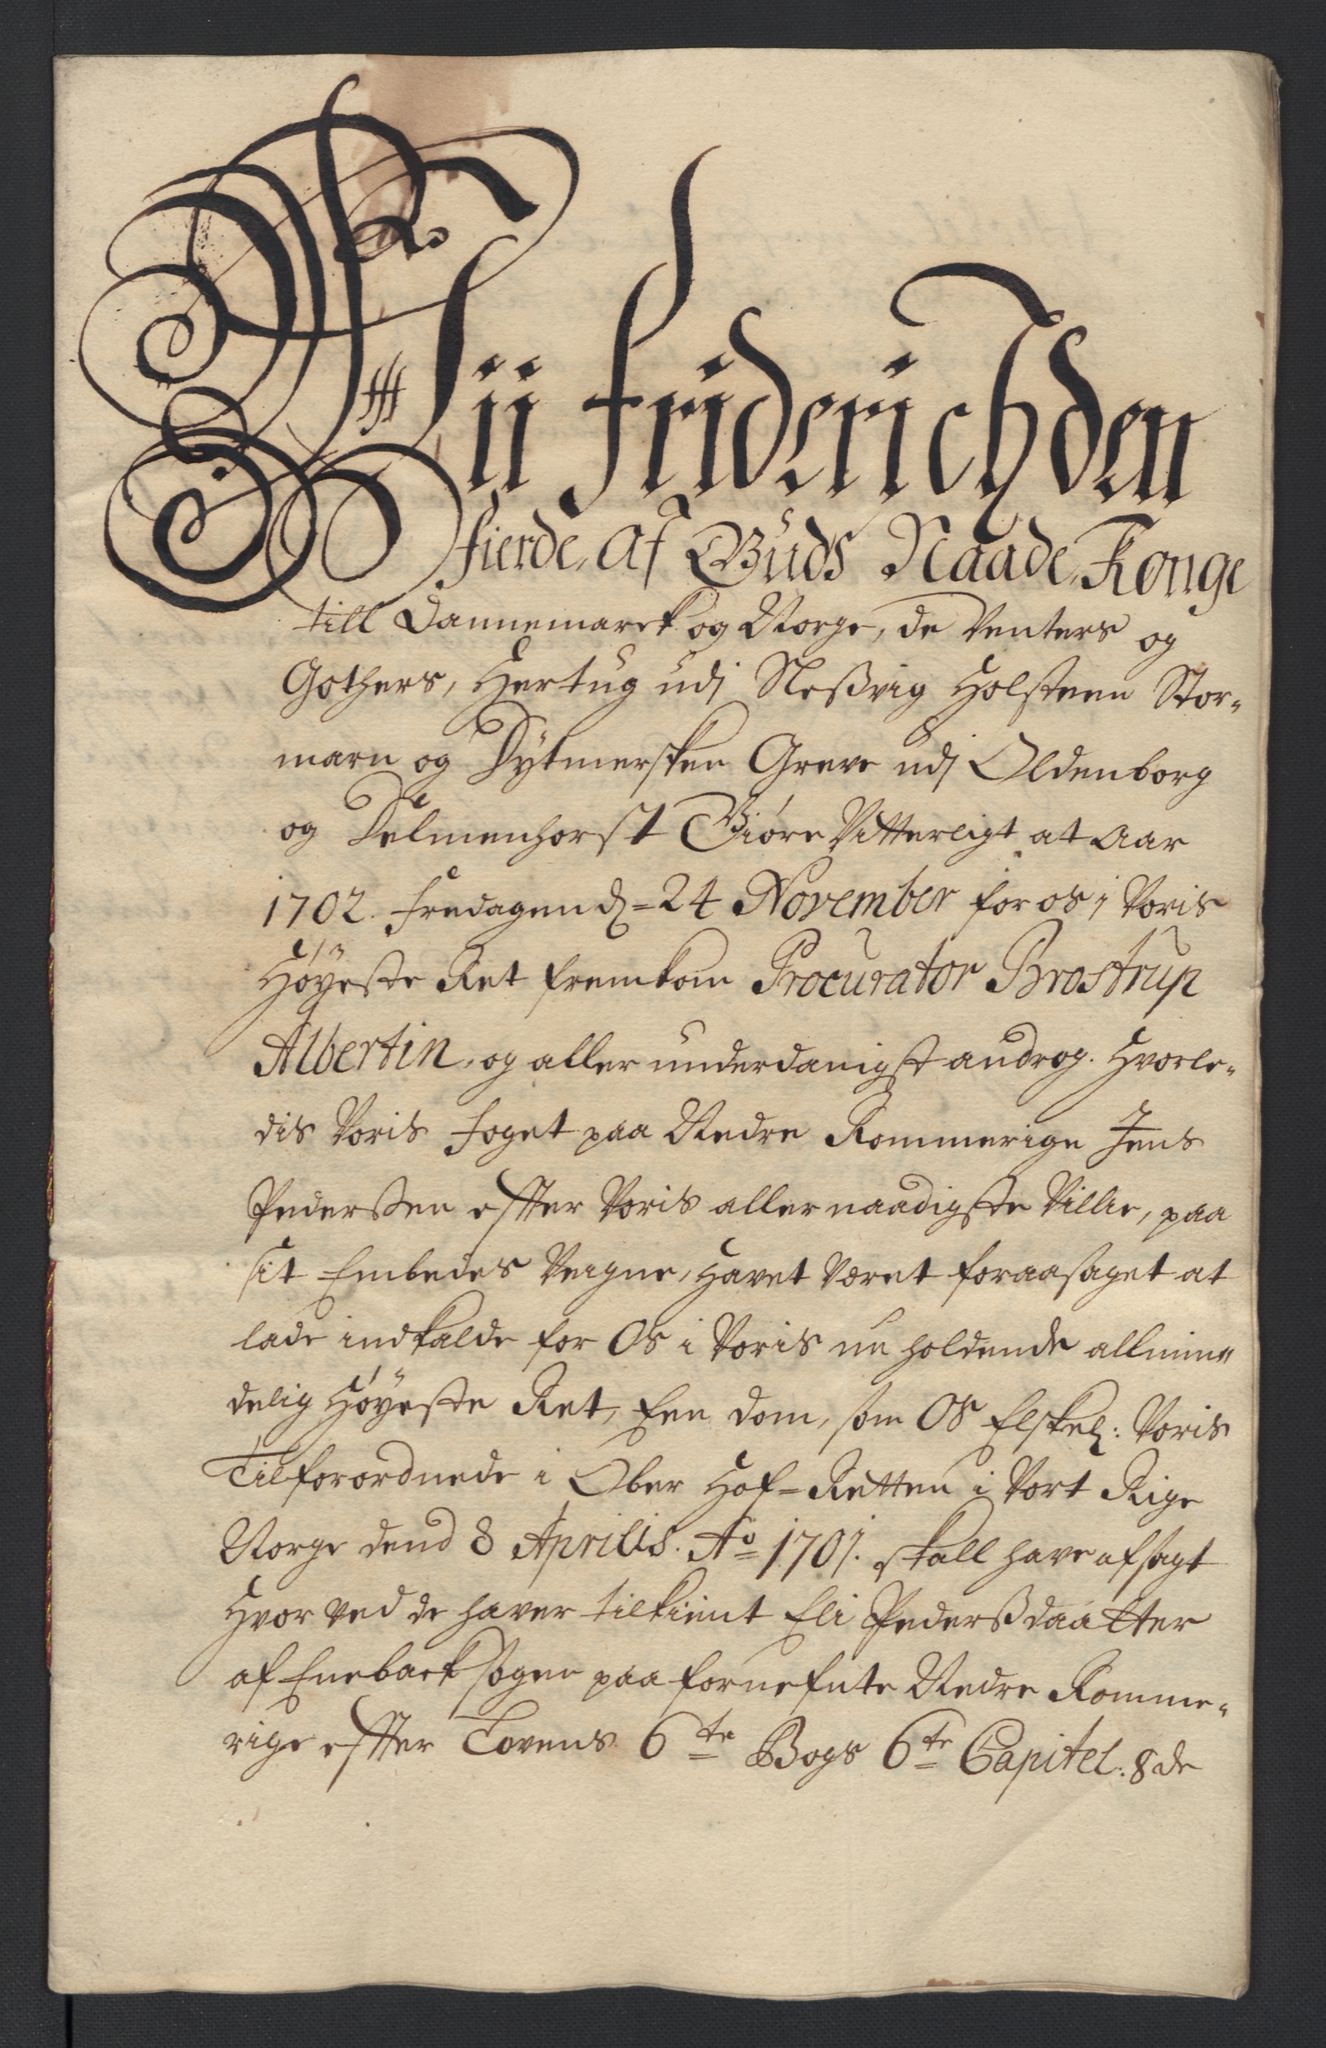 Wii Friderich den
fierde, af Guds Naade, Konge
till Dannemarck og Norge, de Venters og
Gothers, Hertug udj Sleßvig Holsteen Stor-
marn og Dytmersken Greve udj Oldenborg
og Delmenhorst Giøre Vitterligt at Aar
1702. Fredagen d= 24 November for os i Voris
Høyeste Ret fremkom Procurator Brostrup
Albertin, og aller underdanigst androg. Hvorle-
dis Voris Foget paa Nedre Rommerige Jens
Pederßen effter Voris allernaadigste Villie, paa
sit Embedes Veigne, Havet været foraarsaget at
lade indkalde for Os i Voris nu holdende allmin-
delig Høyeste Ret, Een dom, som Os Elskel: Voris
Tilforordnede i Ober Hof-Retten i Vort Rige
Norge dend 8 Aprilis. Ao 1701. skall have afsagt
Hvor ved de haver tilkient Eli Pederßdaatter
af Eneback sogen paa fornefnte Nedre Romme-
rige effter Lovens 6te Bogs 6te Capitel: 8de